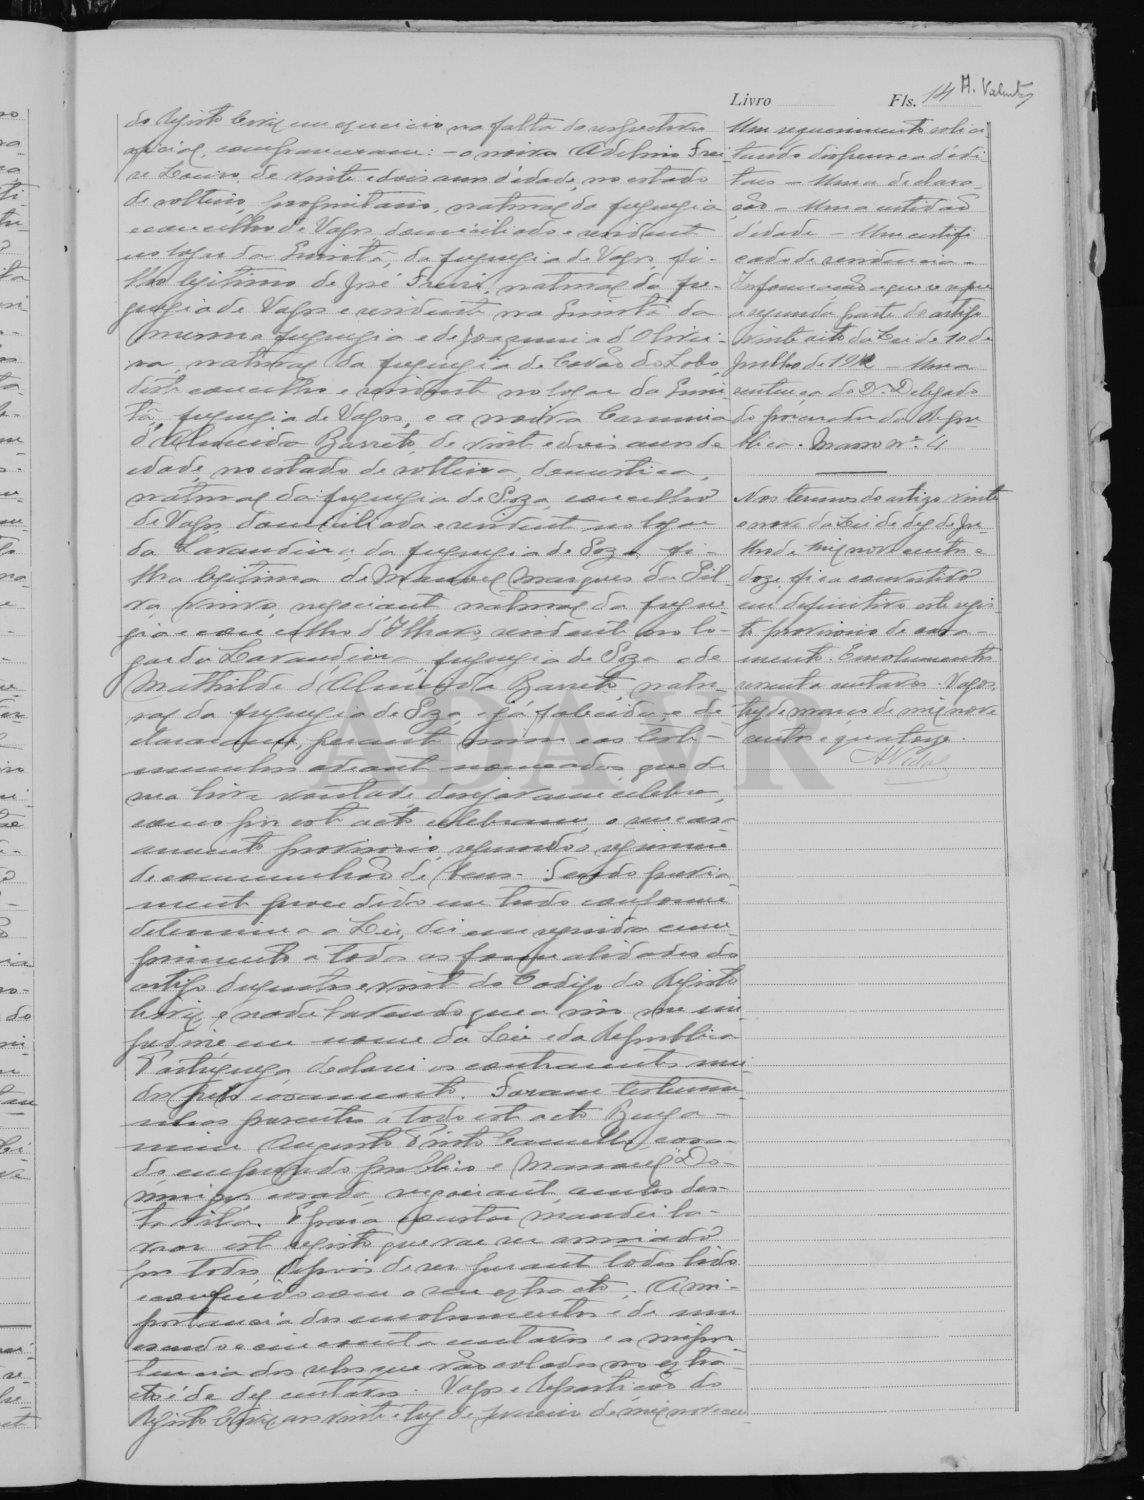 Livro Fls. 14 A. Valente
do Registo Civil em exercicio na falta do respectivo
oficial, compareceram: - o noivo Adelino Frei
re Loureiro, de vinte e dois annos d'edade, no estado
de solteiro, proprietario, natural da freguezia
e concelho de Vagos domiciliado e residente
no logar da Quintã, da freguezia de Vagos fi-
lho legitimo de José Freire, natural da fre-
guezia de Vagos e residente na Quintã da
mesma freguezia e de Joaquina d'Olivei-
ra, natural da freguezia de Covão do Lobo,
deste concelho e residente no logar da Quin
tã, freguezia de Vagos, e a noiva
d'Almeida Barreto, de vinte e dois annos de
edade, no estado de solteira, domestica,
natural da freguezia de Soza, concelho
de Vagos, domiciliada e residente no logar
da Lavandeira, da freguezia de Soza fi-
lha legitima de Manoel Marques da Sil
va viuvo, negociante natural da fregue-
zia e concelho d'Ilhavo residente no lo-
gar da Lavandeira, freguezia de Soza e de
Mathilde d'Almeida Barreto, natu-
ral da freguezia de Soza, e já falecida, e de
clararam, perante mim e as teste-
munhas adeante nomeadas, que de
sua livre vontade, desejavam celebrar,
como por este acto celebram, o seu cas-
amento provisorio, segundo o regimen
de communhão de bens. Sendo previa-
mente procedido em tudo conforme
determina a Lei, dei em seguida cum-
primento a todas as formalidades do
artigo duzentos e vinte do Codigo do Registo
Civil e nada havendo que a mim me im
pedisse em nome da Lei e da Republica
Portugueza, declarei os contraentes uni-
dos pelo casamento. Foram testemu-
nhas presentes a todo este acto Benja-
mim Augusto Pinto Camello, casa-
do empregado publico e Manoel Do-
mingos casado, negociante, ambos des-
ta vila. E para constar mandei la-
vrar este registo que vae ser assinado
por todos, depois de ser perante todos lido
e conferido com o seu extracto. A im-
portancia dos emolumentos é de um
escudo e cincoenta centavos e a impor
tancia dos selos que vão colados no extra-
cto é de dez centavos. Vagos e Repartição do
Registo Civil aos vinte e tres de janeiro de mil novecen
Um requerimento solici
tando dispensa d'edi
taes - Uma declara-
ção - Uma certidão
d'edade - Um certifi
cado de residencia -
Informação a que se refere
a segunda parte do artigo
vinte oito da Lei de 10 de
Julho de 1912 - Uma
sentença do Dr. Delegado
do procurador da Repu
blica. Masso nº. 4
Nos termos do artigo vinte
e nove da Lei de dez de Ju-
lho de mil nove centos e
doze, fica convertido
em definitivo este regis-
to provisorio de casa-
mento. Emolumentos
sessenta centavos. Vagos,
tres de março de mil nove
centos e quatorze.
AVidal
ADAVR